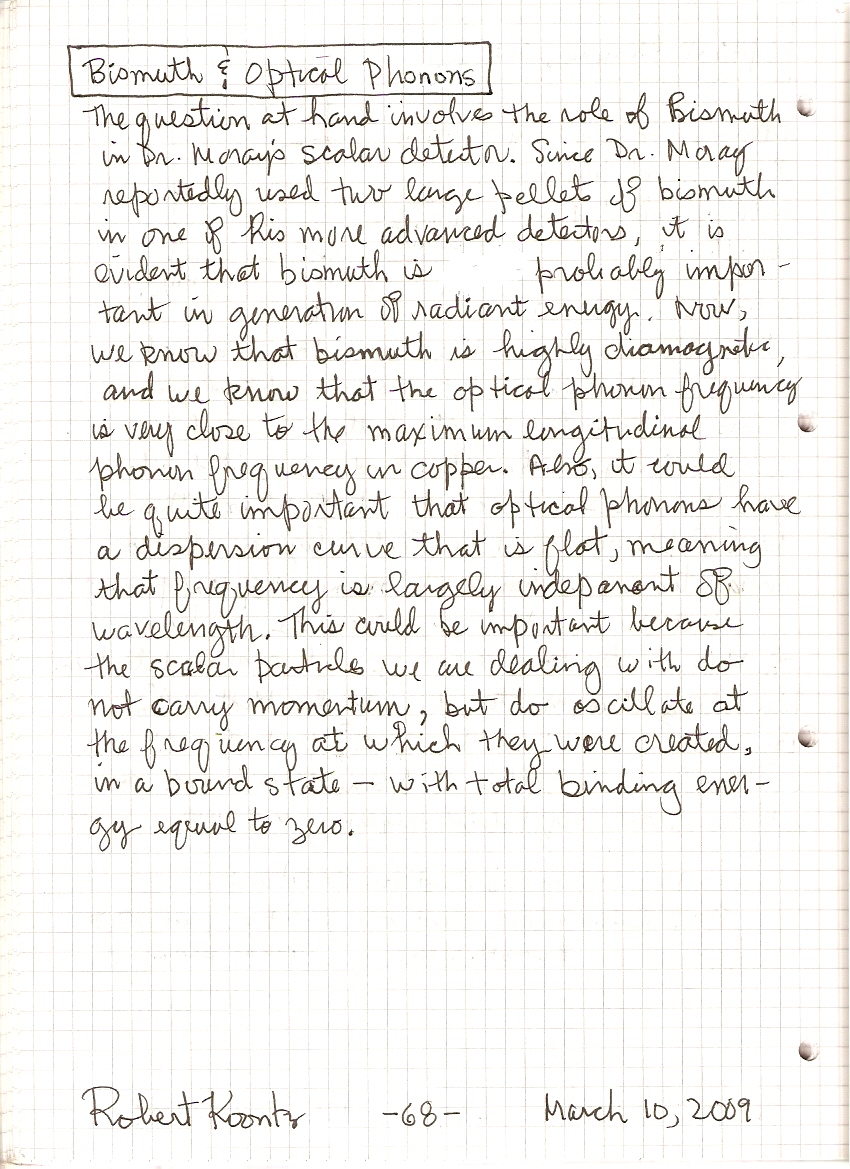 Bismuth & Optical Phonons
The question at hand involves the role of Bismuth
in Dr. Moray's scalar detector. Since Dr. Moray
reportedly used two large pellets of bismuth
in one of his more advanced detectors, it is
evident that bismuth is probably impor-
tant in generation of radiant energy. Now,
we know that bismuth is highly diamagnetic,
and we know that the optical phonon frequency
is very close to the maximum longitudinal
phonon frequency in copper. Also, it could
be quite important that optical phonons have
a dispersion curve that is flat, meaning
that frequency is largely indepanant of
wavelength. This could be important because
the scalar particles we are dealing with do
not carry momentum, but do oscillate at
the frequency at which they were created,
in a bound state – with total binding ener-
gy equal to zero.
Robert Koontz -68- March 10, 2009